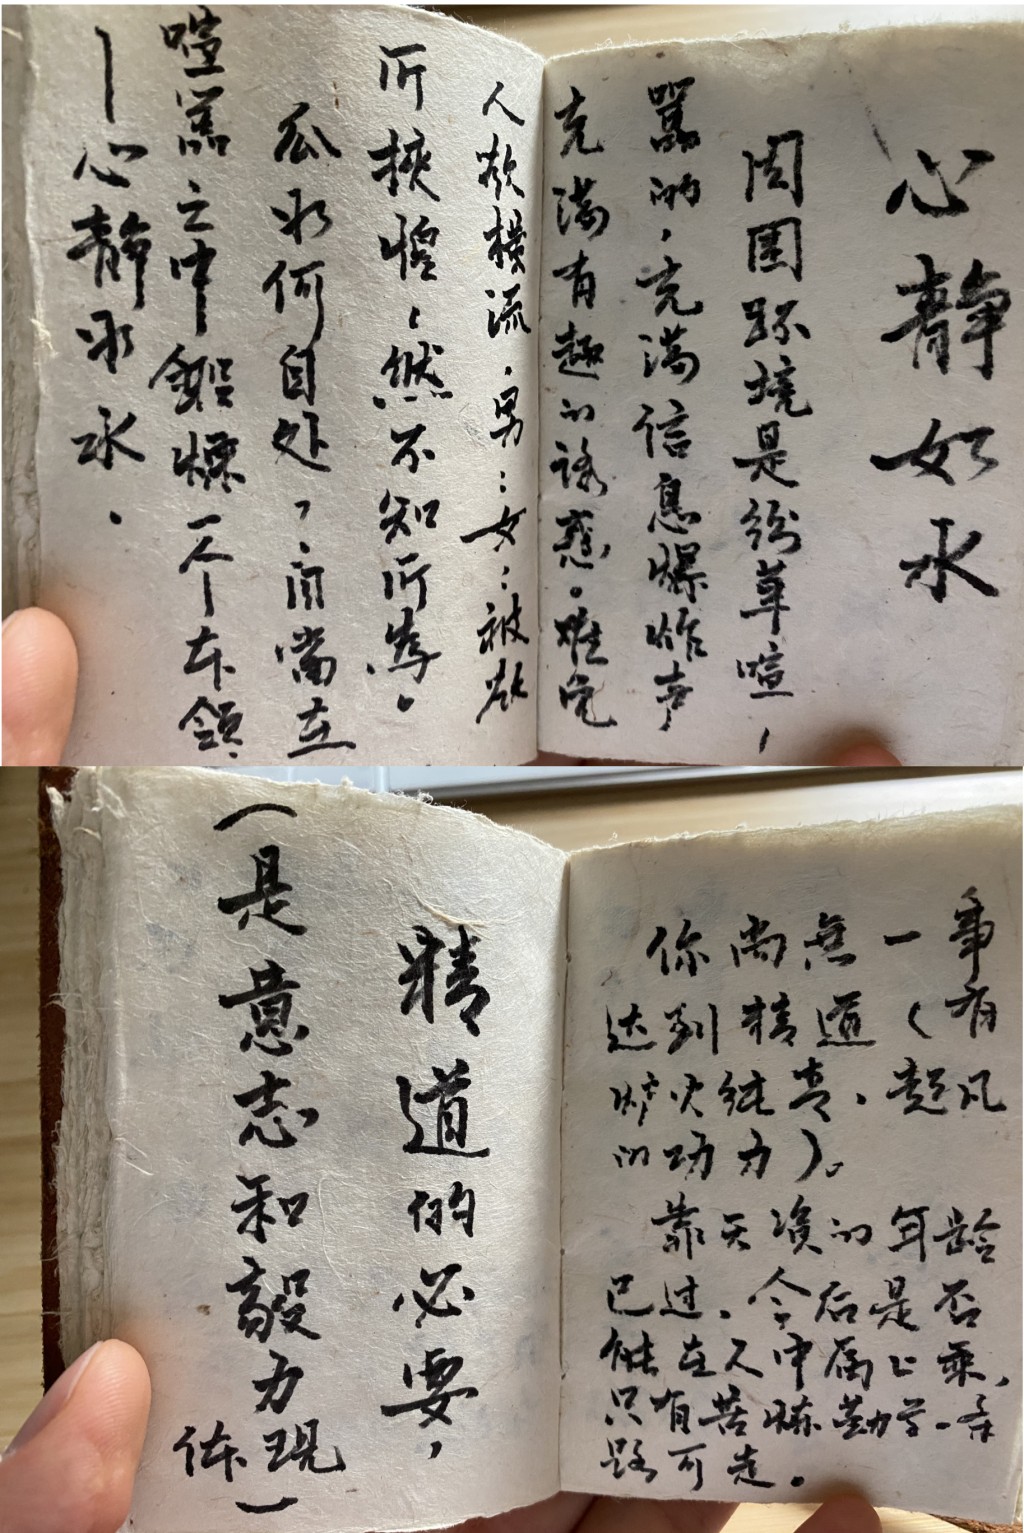 心静如水
周围环境是纷華喧,
嚣的,充满信息爆炸声
充满有趣的诱惑。难免
人欲横流,男:女:被欲
所挟惶,然不知所为。
如何自处,應當在
喧嚣之中鍛煉一个本領
—心静如水。
精道的必要,
(是意志和毅力
体现)
你尚無一事
达到精道(有
炉火纯青、超凡
的功力)。
靠天资的年龄
已过,今后是否
能在人中属上乘,
只有苦炼勤学一条
路可走。